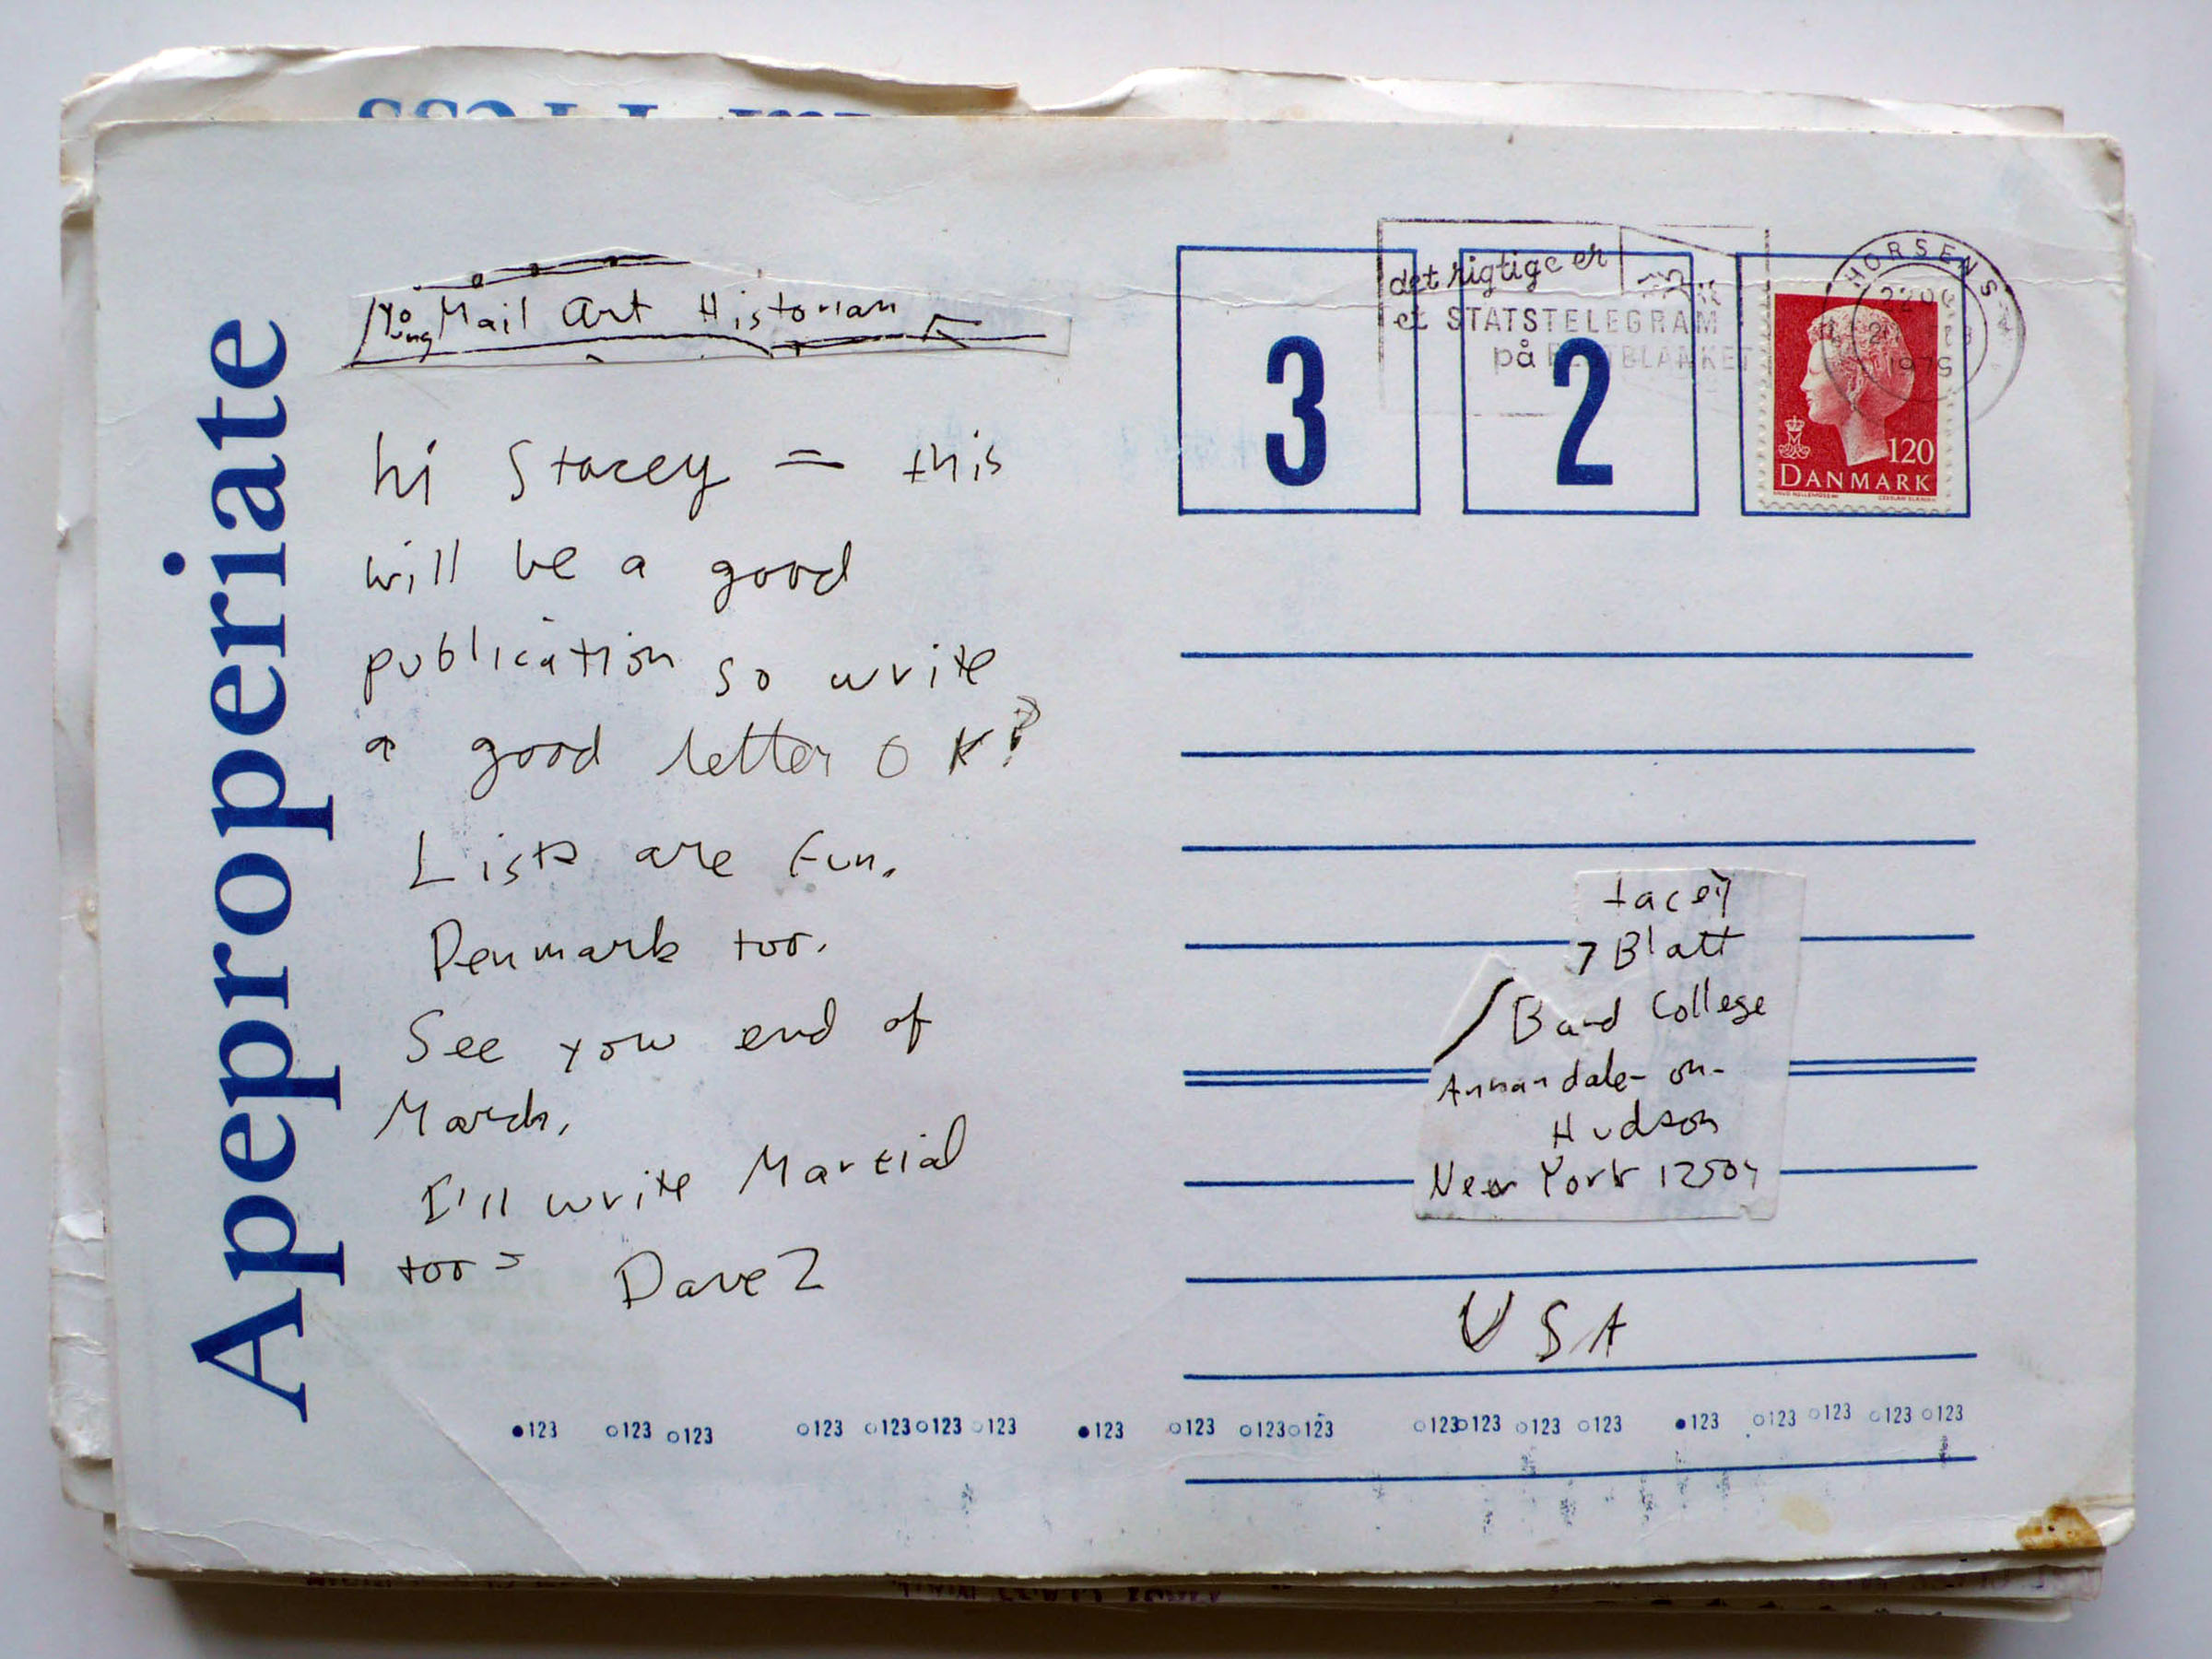 Apeproperiate
Young Mail Art Historian
hi Stacey = this
will be a good
publication so write
a good letter OK?
Lists are fun.
Denmark too.
See you end of
March,
I'll write Martial
too = Dave Z
3
2
det rigtige er
et STATSTELEGRAM
på
HORSENS
1979
120
DANMARK
tacey
Blatt
Bard College
Annandale-on-
Hudson
New York 12504
USA
123 123 123 123 123 123 123 123 123 123 123 123 123 123 123 123 123 123 123 123